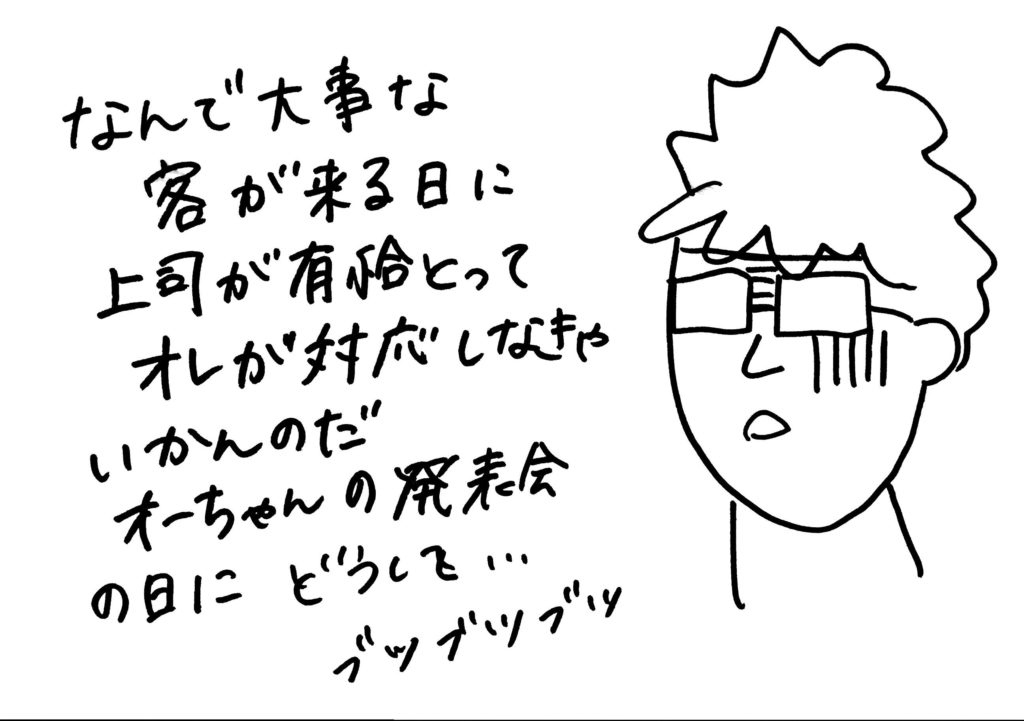 なんで大事な
客が来る日に
上司が有給とって
オレが対応しなきゃ
いかんのだ
オーちゃんの発表会
の日に どうして…
ブツブツブツ